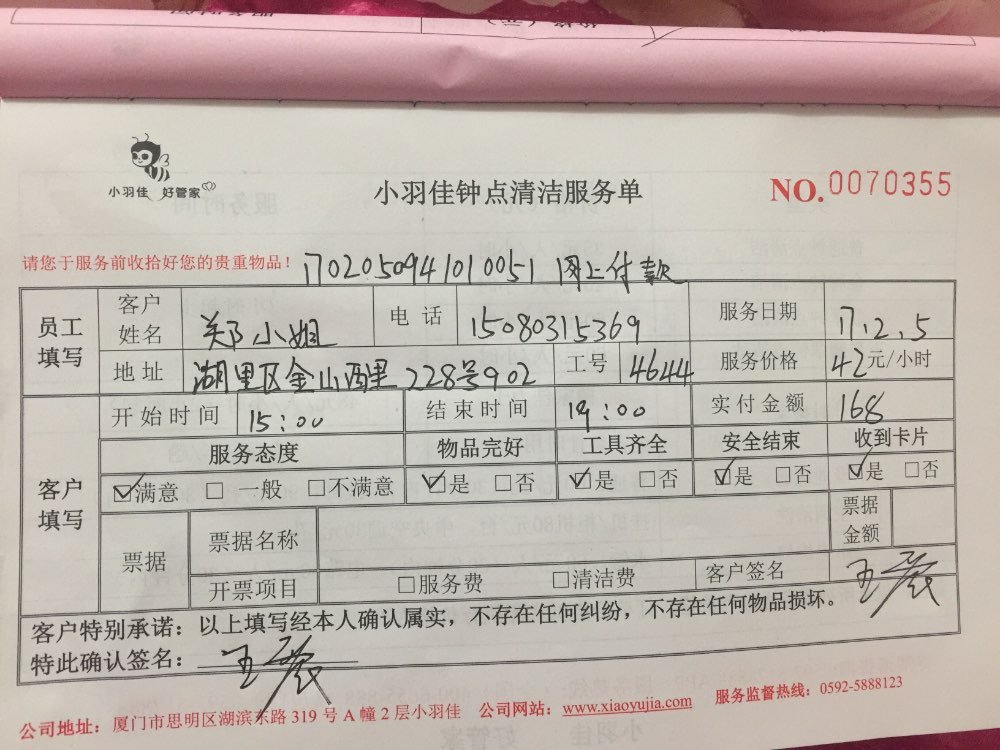 小羽佳 好管家
小羽佳钟点清洁服务单
NO.0070355
请您于服务前收拾好您的贵重物品！
1702050941010051 网上付款
员工填写
客户姓名 郑小姐 电话 15080315369 服务日期 17.2.5
地址 湖里区金山西里228号902 工号 4644 服务价格 42元/小时
客户填写
开始时间 15:00 结束时间 19:00 实付金额 168
服务态度 物品完好 工具齐全 安全结束 收到卡片
☑满意 □一般 □不满意 ☑是 □否 ☑是 □否 ☑是 □否 ☑是 □否
票据 票据名称 票据金额
开票项目 □服务费 □清洁费 客户签名 王
客户特别承诺：以上填写经本人确认属实，不存在任何纠纷，不存在任何物品损坏。
特此确认签名： 王
公司地址：厦门市思明区湖滨东路 319 号 A 幢 2 层小羽佳 公司网站：www.xiaoyujia.com 服务监督热线：0592-5888123